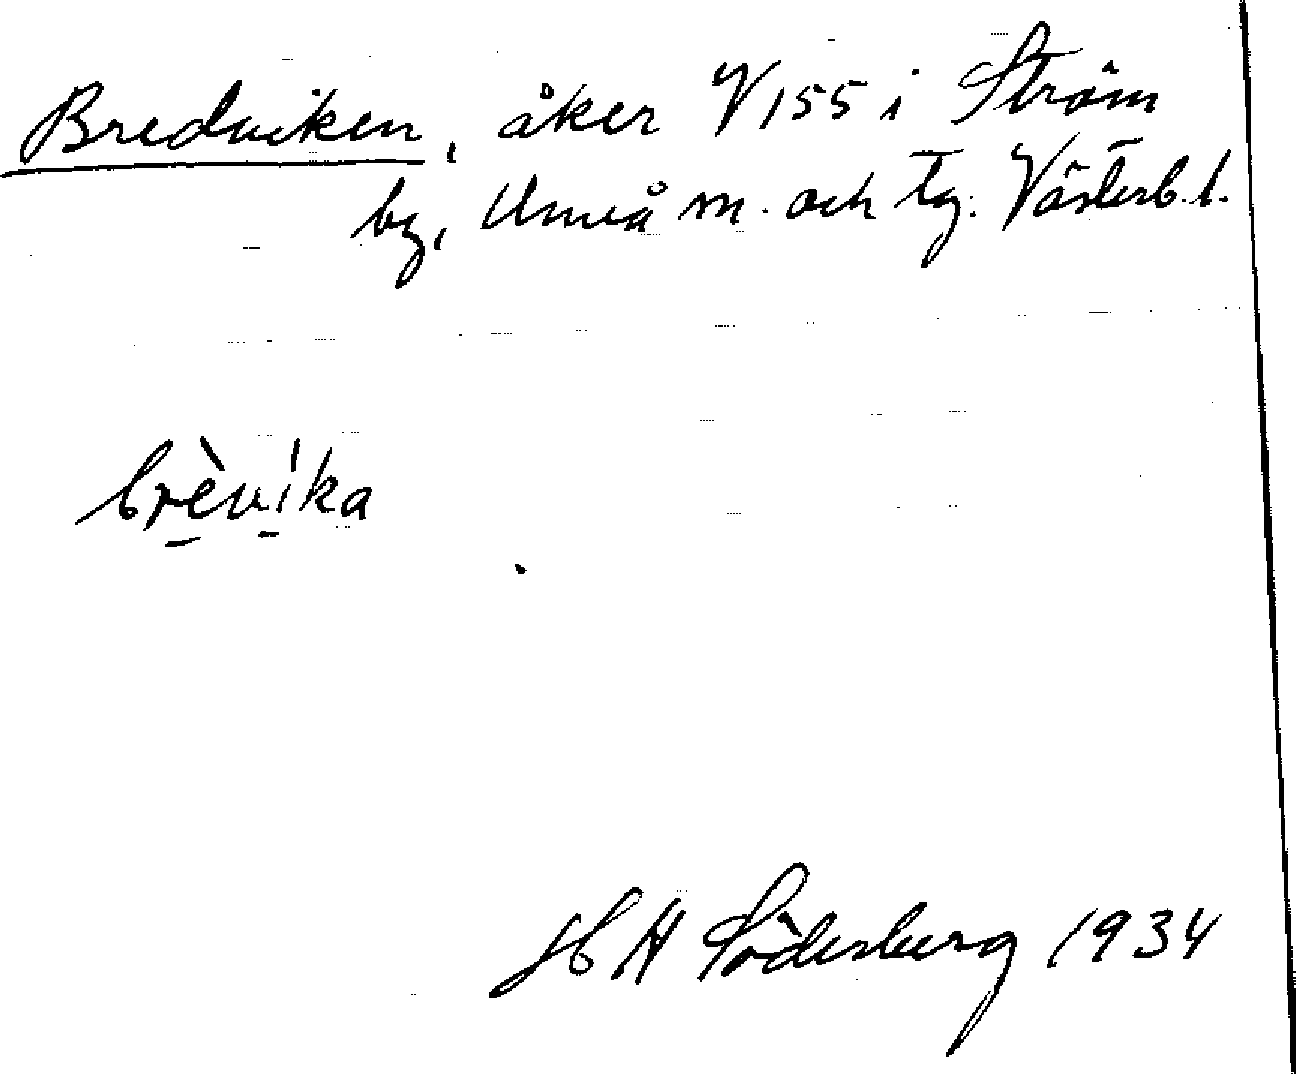 Bredviken, åker V155 i Ström
by, Umeå m. och tg. Västerb. l.
brèvi̍ka
H A Söderberg 1934